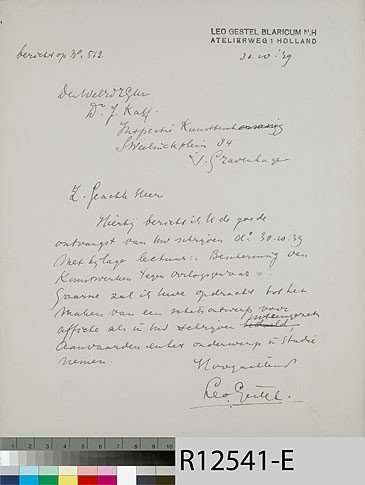 LEO GESTEL BLARICUM N.H
ATELIERWEG 1 HOLLAND
31-10-'39
bericht op No. 512
Den Weled. Zgr
Dr. J. Kalf
Inspectie Kunst
34
's Gravenhage
Z. Geachte Heer
Hierbij bericht ik U de goede
ontvangst van Uw schrijven d.d. 30-10-39
met bijlage lectuur: Bescherming van
Kunstwerken tegen oorlogsgevaar.
Gaarne zal ik Uwe opdracht tot het
maken van een schetsontwerp voor
affiche als in Uw schrijven uiteengezet
aanvaarden en het onderwerp in Studie
nemen.
Hoogachtend
Leo Gestel.
1 2 3 4 5 6 7 8 9 10
R12541-E